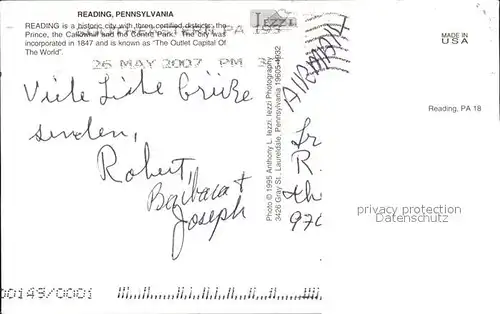 READING, PENNSYLVANIA
READING is a historic city with three certified districts: the
Prince, the Callowhill and the Centre Park. The city was
incorporated in 1847 and is known as "The Outlet Capital Of
The World".
PA 193
26 MAY 2007 PM
Viele Liebe Grüße
senden,
Robert,
Barbara +
Joseph
00149/0001
Iezzi
Photo © 1995 Anthony L. Iezzi, Iezzi Photography
3426 Gray St., Laureldale, Pennsylvania 19605
AIRMAIL
Fr
R.
970
MADE IN
USA
Reading, PA 18
privacy protection
Datenschutz